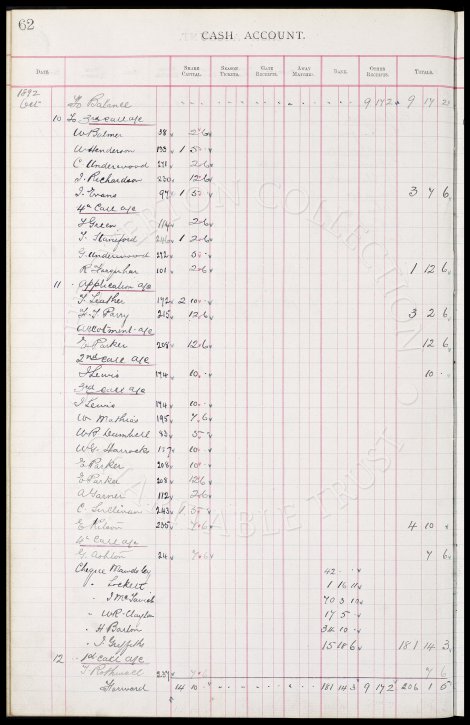 62
CASH ACCOUNT.
DATE. SHARE CAPITAL. SEASON TICKETS. GATE RECEIPTS. AWAY MATCHES. BANK. OTHER RECEIPTS. TOTALS.
1892
Oct To Balance 9 17 2 9 17 2
10 To 3rd call a/c
W Balmer 38 2 6
W Henderson 1 5
C Underwood 2 6
J. Richardson 230 12 6
J. Evans 94 1 5 3 7 6
4th Call a/c
J Green 114 2 6
1 2 6
G Underwood 272 5
R Farquhar 101 2 6 1 12 6
11 Application a/c
J. Leather 172 2 10
J. J Parry 215 12 6 3 2 6
Allotment a/c
E Parker 208 12 6 12 6
2nd call a/c
J Lewis 194 10 10
3rd call a/c
J Lewis 194 10
W Mathias 195 7 6
W R Dumbell 83 5
W G Harrocks 137 10
E Parker 208 10
E Parker 208 12 6
A Garner 112 2 6
C. Sullivan 243 1 5
E Wilson 235 7 6 4 10
4th Call a/c
G. Ashton 24 7 6 7 6
Cheque Mawdsley 42
" Lockett 1 16 11
" J McTavish 70 3 10
" W R Clayton 17 5
" H Barton 34 10
" J Griffiths 15 18 6 181 14 3
12 1st call a/c
J Rothwell 237 7 6 7 6
Forward 14 10 181 14 3 9 17 2 206 1 5
EVERTON COLLECTION
CHARITABLE TRUST